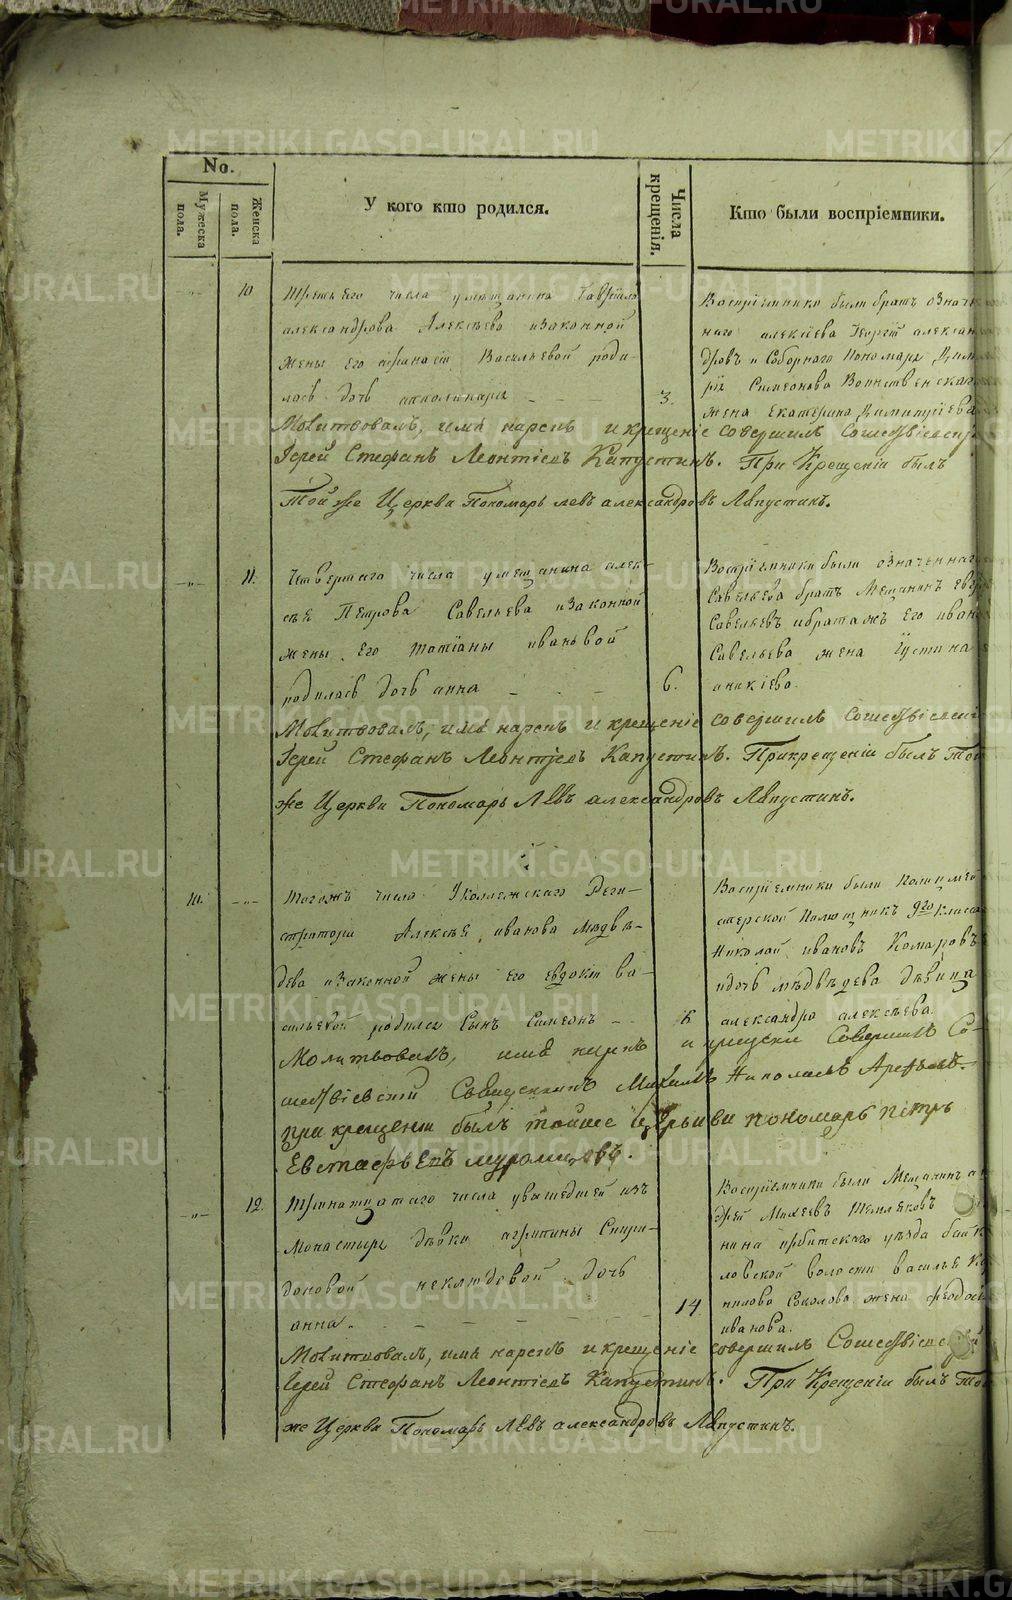 METRIKI.GASO-URAL.RU
No.
Мужеска пола.
Женска пола.
У кого кто родился.
Числа крещенія.
Кто были воспріемники.
10
Третьего числа умещанина Гавріила
александрова Алексѣева изаконной
жены его Васильевой роди-
лась дочь апполинарія
3.
Воспріемники были братъ означен
наго алексѣева Георгій алексан
дровъ и Соборного Пономаря Дими
рія Симеонова Воинственскаго
жена Екатерина Димитріева
Молитвовалъ, имя нарекъ и крещеніе совершилъ Сошествіевскій
Іерей Стефанъ Леонтіевъ Капустинъ. При Крещеніи былъ
Той же Церкви Пономарь левъ александровъ Ляпустинъ.
11.
Четвертаго числа умещанина алек-
сѣя Петрова Савельева изаконной
жены его татіаны ивановой
родилась дочь анна
6.
Воспріемники были означеннаго
Савельева братъ Мещанинъ
Савельевъ ибратажъ его иван
Савельева жена Іустина
аникіева.
Молитвовалъ, имя нарекъ и крещеніе совершилъ Сошествіевскій
Іерей Стефанъ Леонтіевъ Капустинъ. Прикрещеніи былъ той
же Церкви Пономарь Левъ александровъ Ляпустинъ.
Тогожъ числа Уколлежскаго Реги-
стратора Алексѣя иванова Мѣдвѣ-
дева изаконной жены его евдокіи ва-
сильевой родился Сынъ Симеонъ
Воспріемники были Полицмей
стерской Помощникъ 9го класса
Николай ивановъ Комаровъ
идочь мѣдвѣдева дѣвица
александра алексѣева.
Молитвовалъ, имя нарекъ и крещеніе Совершилъ Со-
шествіевскій Священникъ Михаилъ Николаевъ
при крещеніи былъ тойже Церькви пономарь петръ
Евстафьевъ муромцовъ.
12.
Тринатцатаго числа увышедшей изъ
Монастыря дѣвки агрипины Спири-
доновой неклюдовой дочь
анна.
14
Воспріемники были Мещанинъ ан
дрей Михеевъ
нина ирбитскаго уѣзда байка
ловской волости василья
нилова Соколова жена феодосія
иванова.
Молитвовалъ, имя нарекъ и крещеніе совершилъ Сошествіевскій
Іерей Стефанъ Леонтіевъ Капустинъ. При Крещеніи былъ той
же Церкви Пономарь Левъ александровъ Ляпустинъ.